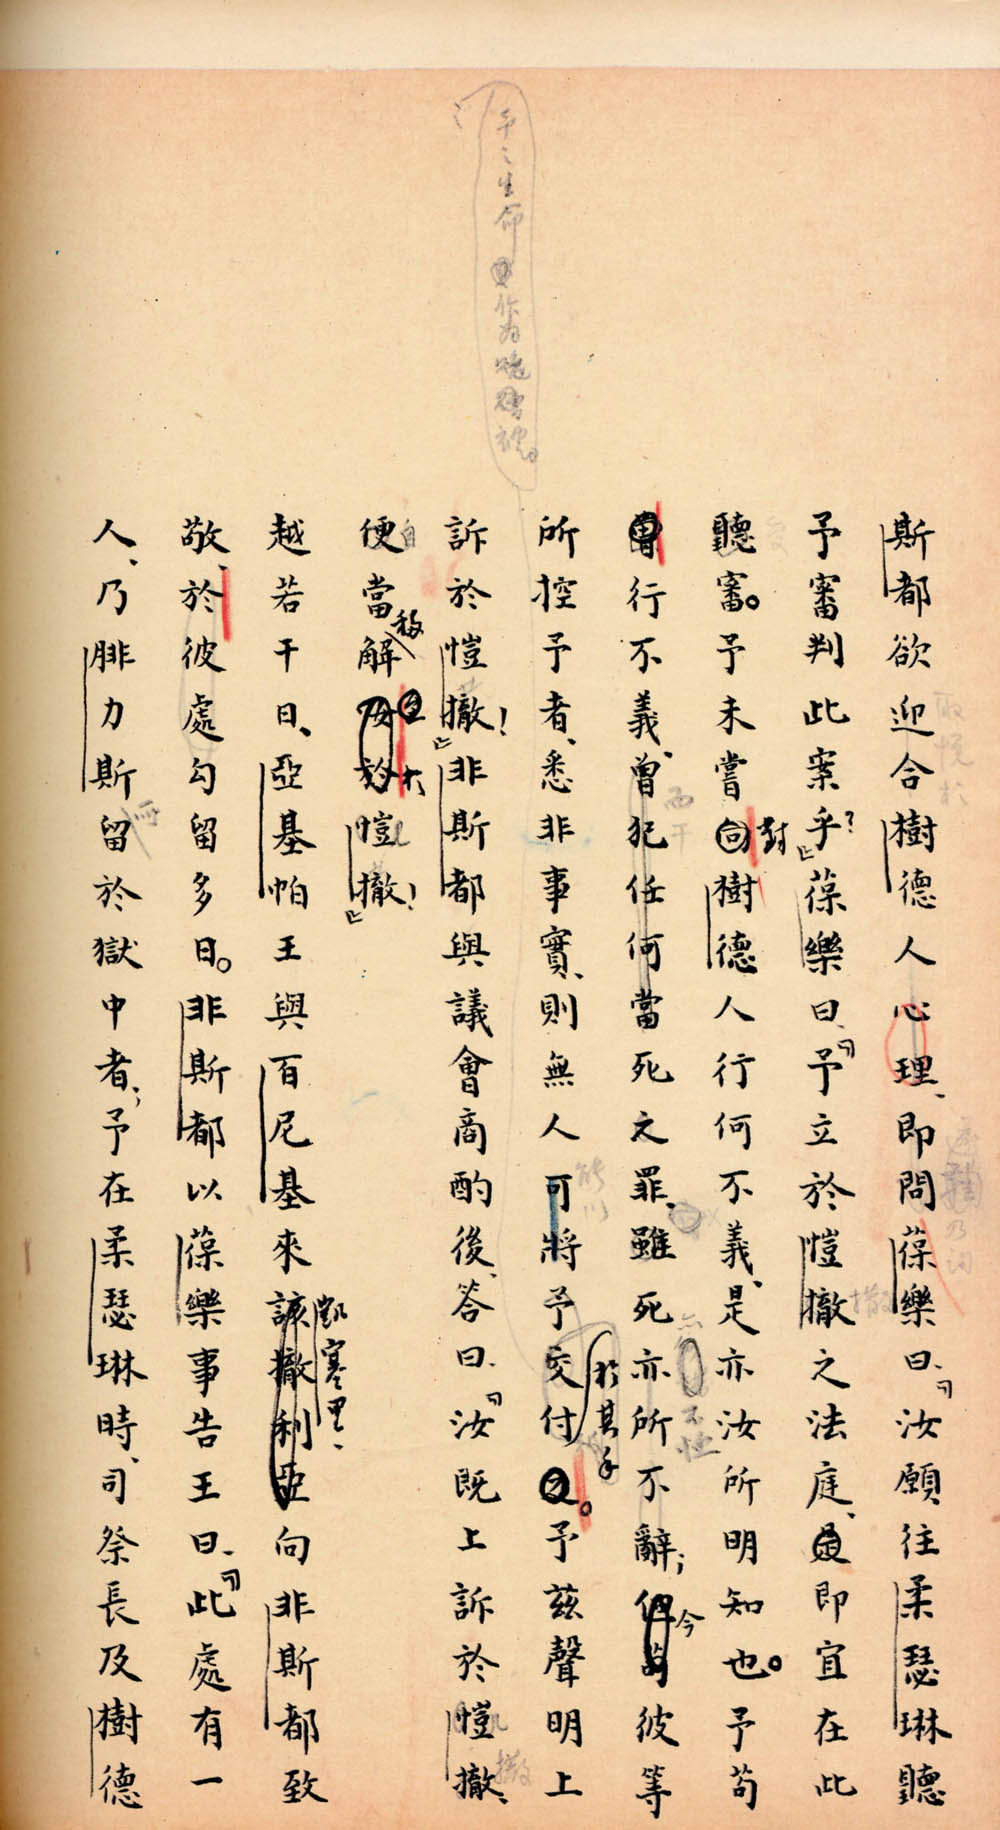 斯都欲迎合樹德人心理、即問葆樂曰、「汝願往柔瑟琳聽
予審判此案乎？」葆樂曰、「予立於愷撤之法庭、即宜在此
聽審。予未嘗對樹德人行何不義、是亦汝所明知也。予苟
行不義、曾犯任何當死之罪、雖死亦所不辭；今彼等
所控予者、悉非事實、則無人可將予交付於其手。予茲聲明上
訴於愷撤！」非斯都與議會商酌後、答曰、「汝既上訴於愷撤、
便當移解於愷撤！」
越若干日、亞基帕王與百尼基來凱塞里、向非斯都致
敬、於彼處勾留多日。非斯都以葆樂事告王曰、「此處有一
人、乃腓力斯留於獄中者；予在柔瑟琳時、司祭長及樹德
予之生命
作為